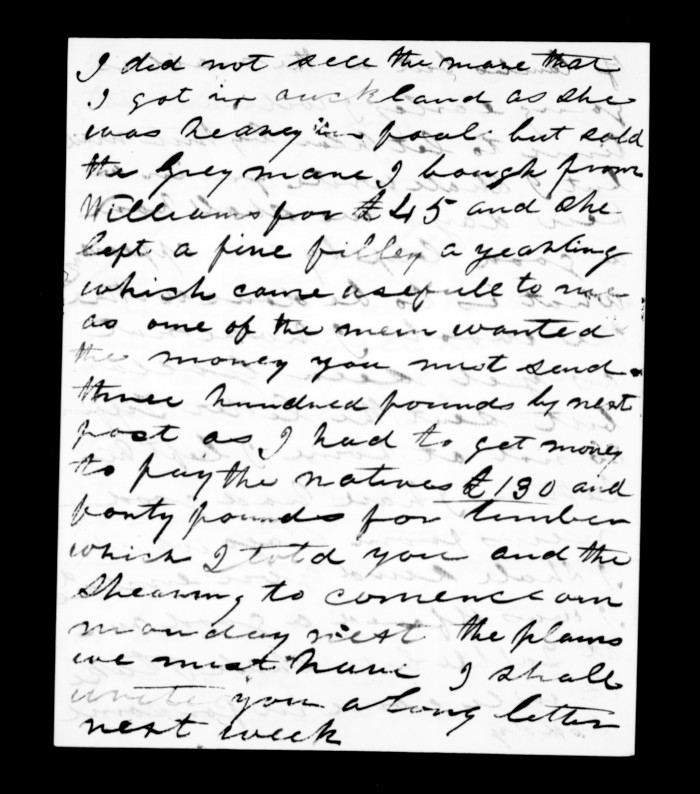 I did not sell the mare that
I got in auckland as she
was heavey in foal but sold
the Grey mare I bough from
Williams for £45 and she
left a fine filley a yearling
which came usefull to me
as one of the mein wanted
the money you must send
three hundred pounds by next
post as I had to get money
to pay the natives £130 and
forty pounds for timber
which I told you and the
Shearing to comence on
monday next the plans
we must have I shall
write you along letter
next week